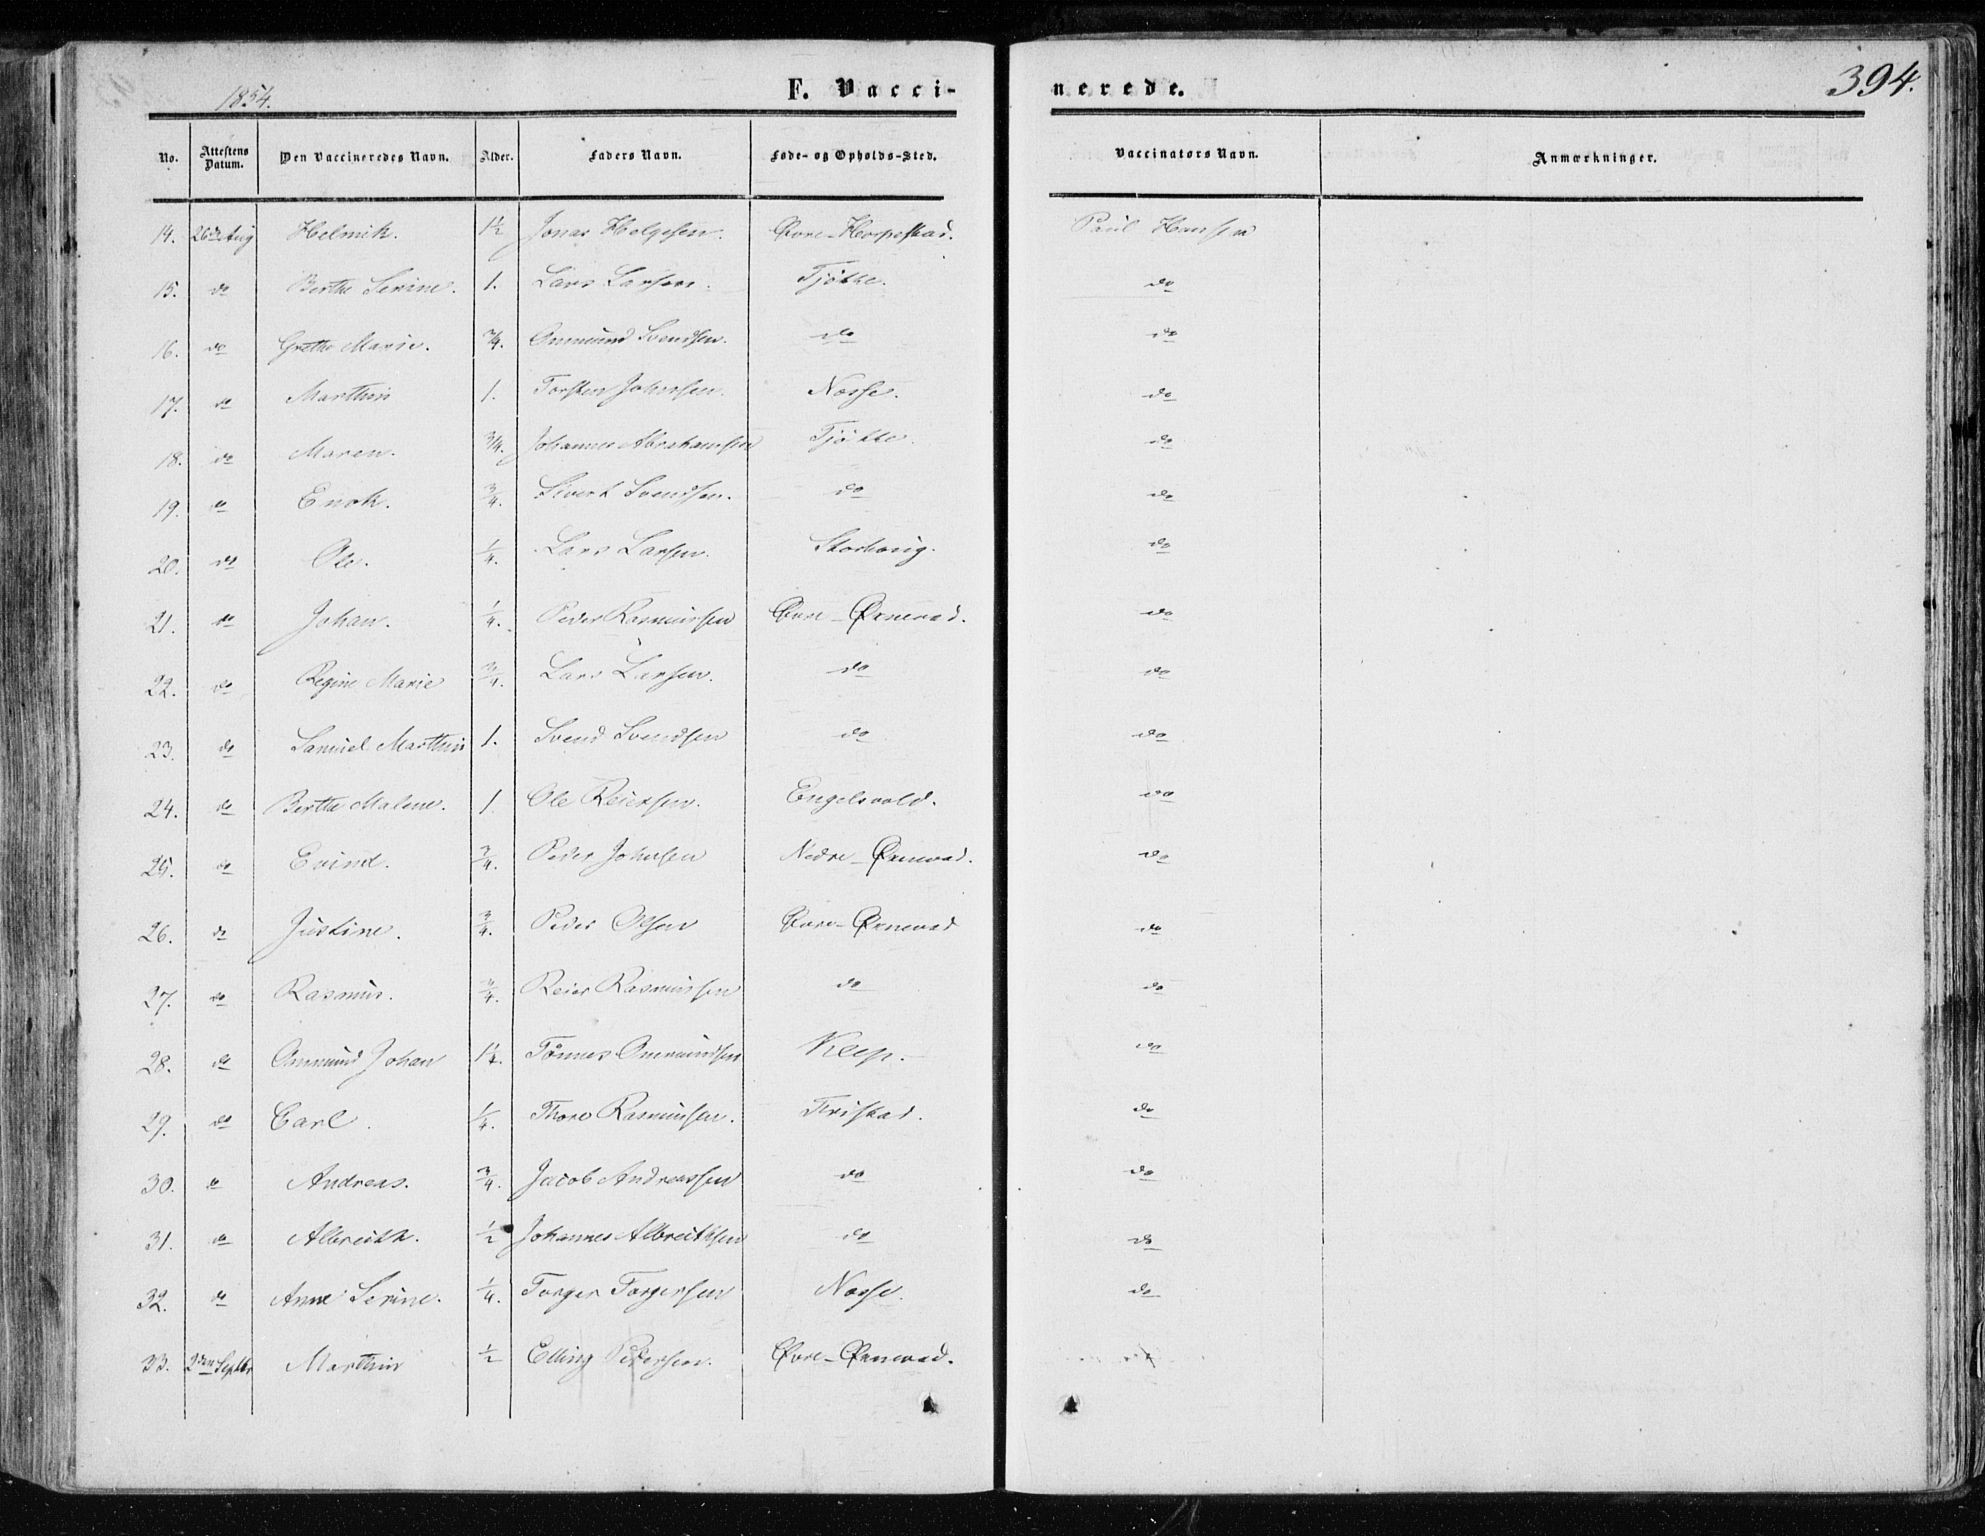 1854.
F. Vacci-
nerede.
394.
No. Attestens Datum. Den Vaccineredes Navn. Alder. Faders Navn. Føde- og Opholds-Sted. Vaccinators Navn. Anmærkninger.
14. 26de Aug Helmik. 1½ Jonas Helgesen. Øvre-Horpestad. Paul Hansen
15. do Berthe Serine. 1. Lars Larsen. Tjøtte. do
16. do Grethe Marie. ¾. Ommund Svendsen. do do
17. do Marthin 1. Torsten Johnsen. Nosse. do
18. do Maren. 3/4. Johannes Abrahamsen Tjøtte. do
19. do Enok. ¾. Sivert Svendsen. do do
20. do Ole. ¼. Lars Larsen. Storhoug. do
21. do Johan. ¼. Peder Rasmussen Øvre-Ørnevad. do
22. do Regine Marie ¾. Lars Larsen. do do
23. do Samuel Marthin 1. Svend Svendsen do do
24. do Berthe Malene. 1 Ole Reiersen. Engelsvold. do
25. do Evind. ¾. Peder Johnsen Nedre-Ørnevad. do
26. do Justine. ¾. Peder Olsen Øvre-Ørnevad do
27. do Rasmus. ¾. Reier Rasmussen do do
28. do Ommund Johan 1¼. Tønnes Ommundsen Klep. do
29. do Carl. ¼. Thore Rasmussen. Friestad. do
30. do Andreas. ¾. Jacob Andreassen do do
31. do Albreckt. ½ Johannes Albrecktsen do do
32. do Anne Serine. ¼. Torger Torgersen Nosse. do
33. 2den Septbr Marthin ½ Elling Pedersen. Øvre-Ørnevad.